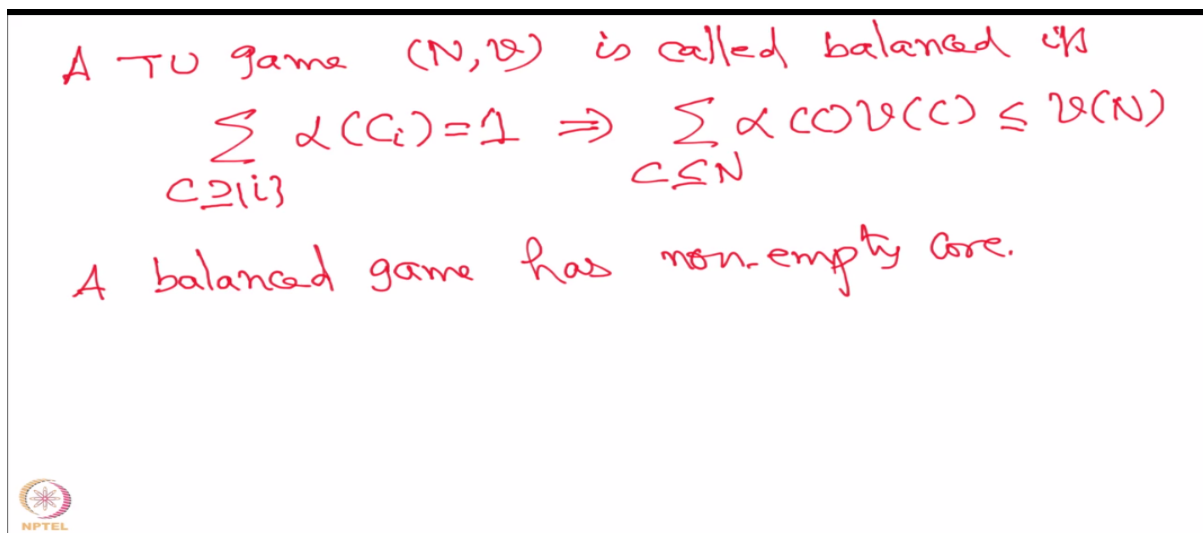 A TU game (N, v) is called balanced if
∑ α(Ci) = 1 ⇒ ∑ α(C)v(C) ≤ v(N)
C⊇{i} C⊆N
A balanced game has non-empty core.
NPTEL